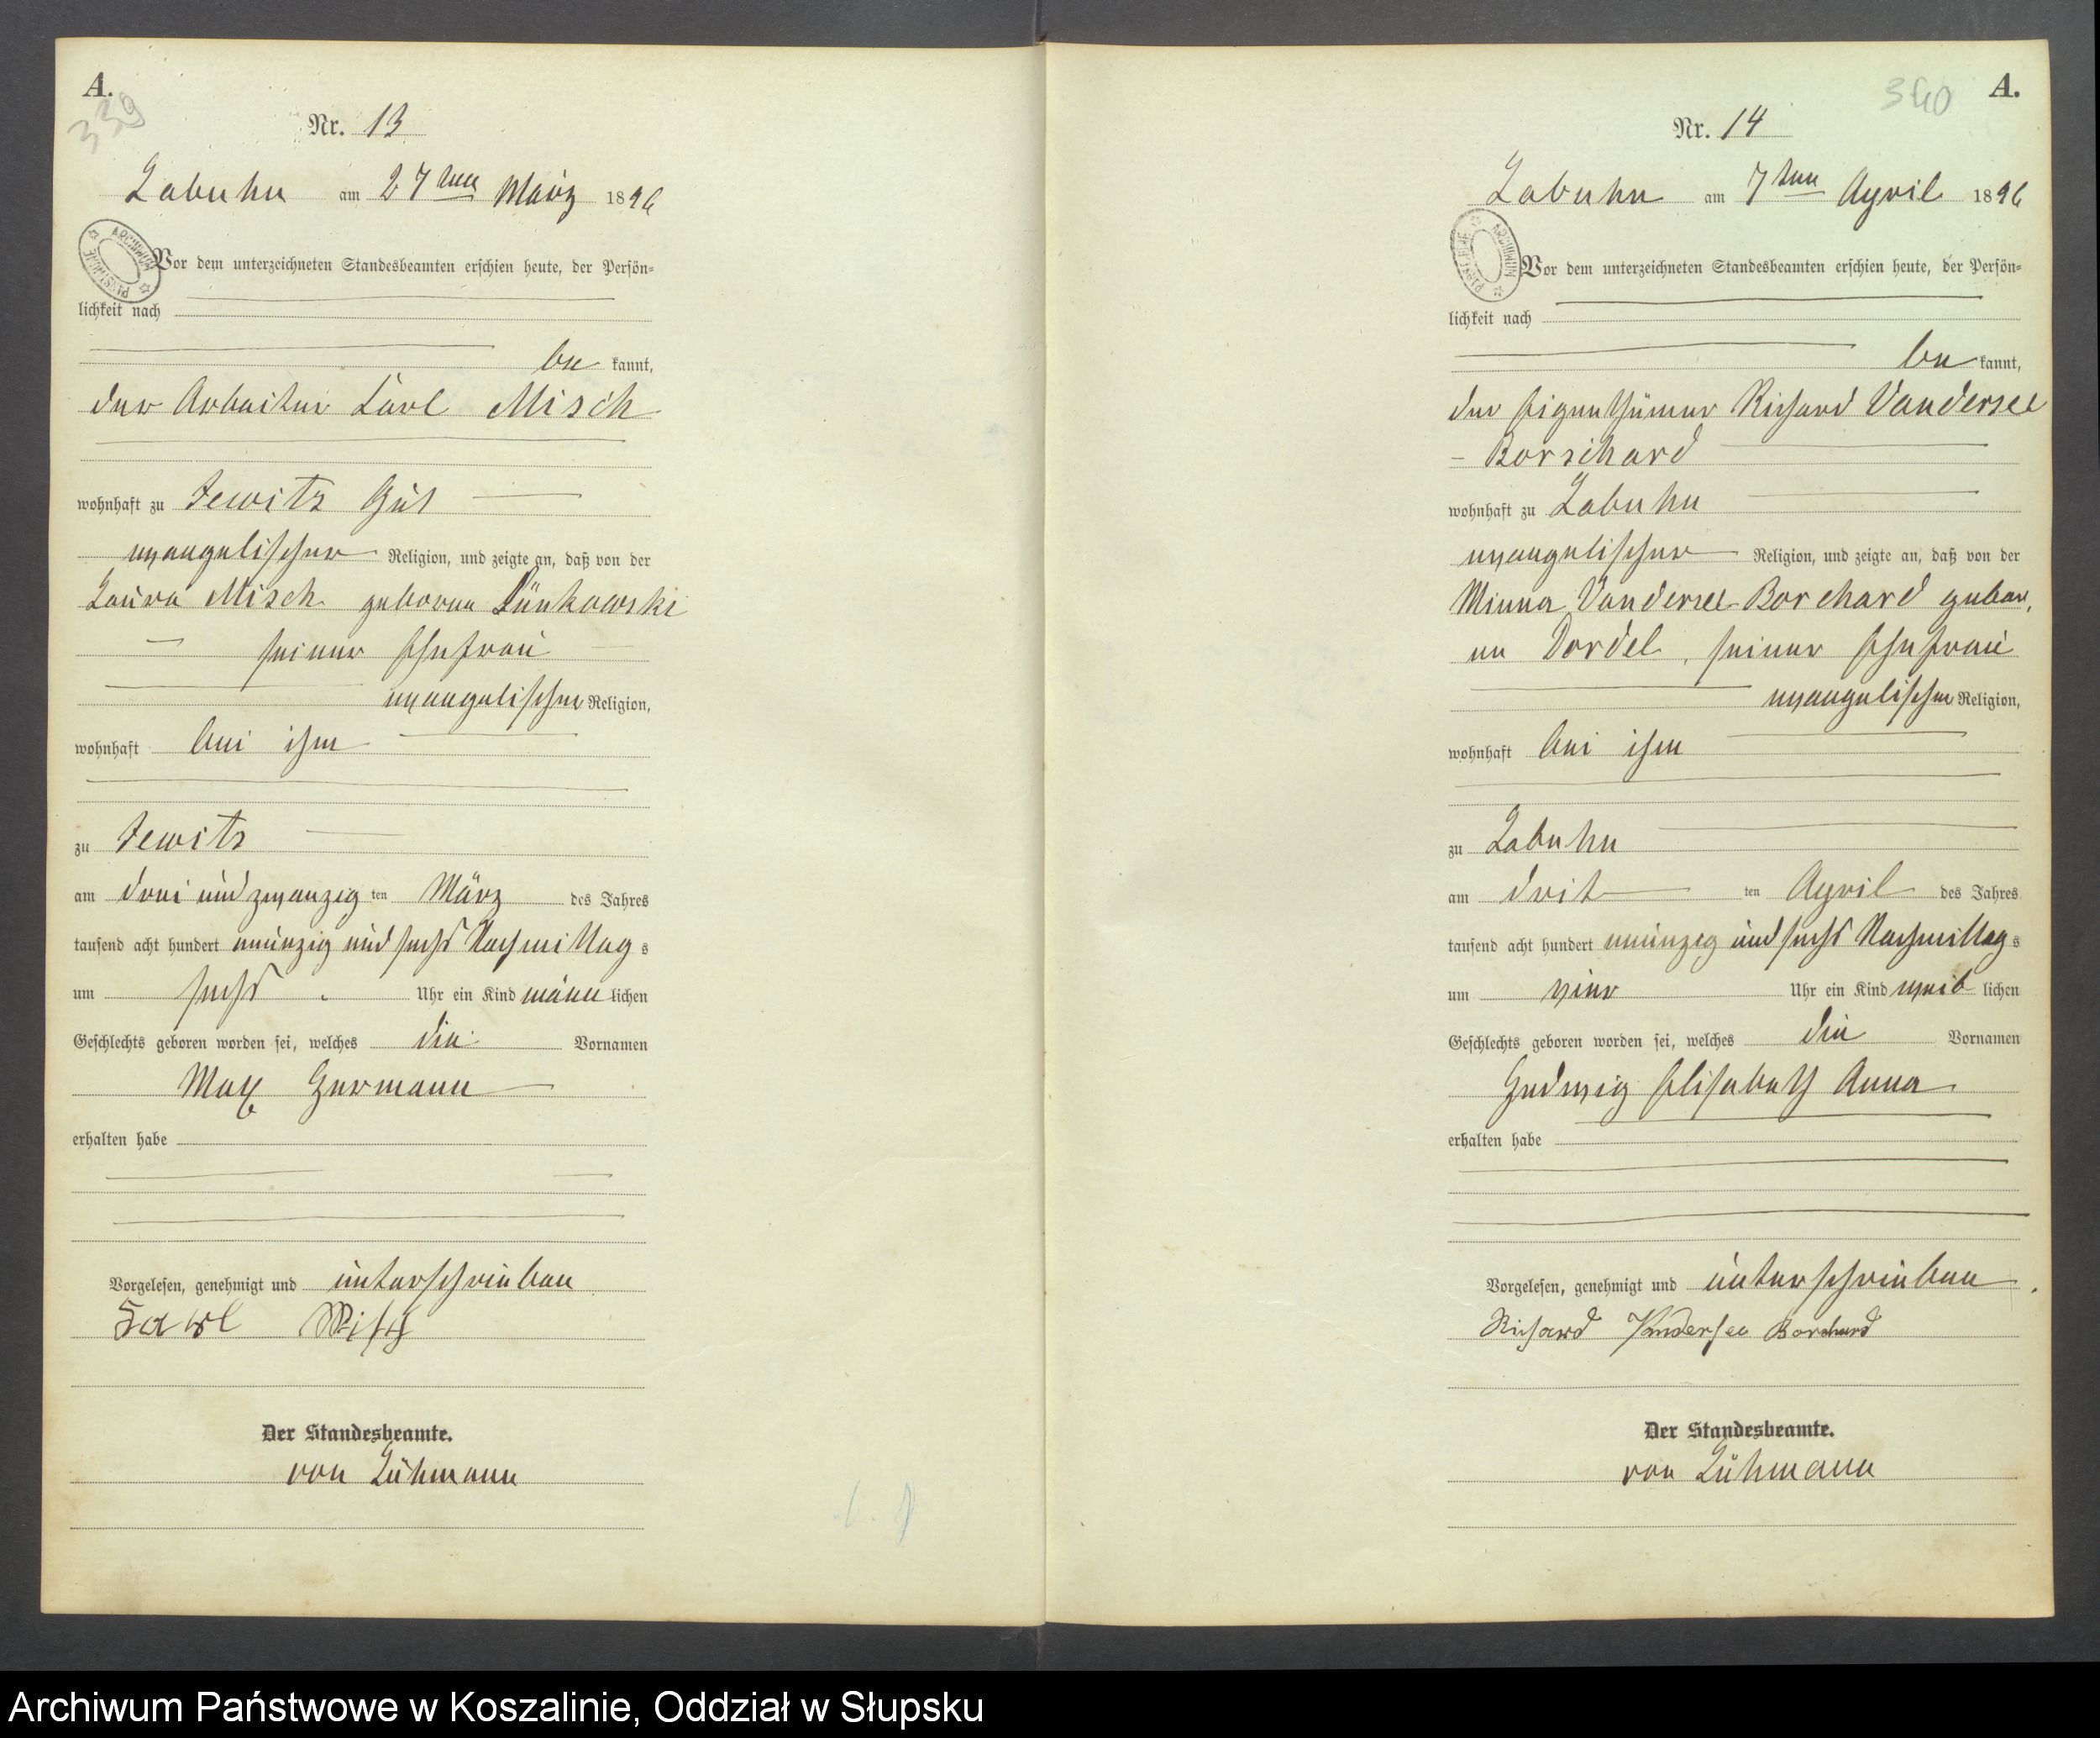 A.
339
Nr. 13
Labuhn am 27ten März 1896
Vor dem unterzeichneten Standesbeamten erschien heute, der Persön-
lichkeit nach
be kannt,
der Arbeiter Carl Misch
wohnhaft zu Jewitz Gut
evangelischer Religion, und zeigte an, daß von der
Laura Misch geborene Lünkowski
seiner Ehefrau
evangelischer Religion,
wohnhaft bei ihm
zu Jewitz
am drei und zwanzig ten März des Jahres
tausend acht hundert neunzig und sechs Nachmittag s
um sechs Uhr ein Kind männ lichen
Geschlechts geboren worden sei, welches die Vornamen
Max Hermann
erhalten habe
Vorgelesen, genehmigt und unterschrieben
Carl Misch
Der Standesbeamte.
von Lühmann
340
A.
Nr. 14
Labuhn am 7ten April 1896
Vor dem unterzeichneten Standesbeamten erschien heute, der Persön-
lichkeit nach
be kannt,
der Eigenthümer Richard Vandersee
- Borschard
wohnhaft zu Labuhn
evangelischer Religion, und zeigte an, daß von der
Minna Vandersee Borchard gebor,
ne Dordel, seiner Ehefrau
evangelischer Religion,
wohnhaft bei ihm
zu Labuhn
am drit ten April des Jahres
tausend acht hundert neunzig und sechs Nachmittag s
um vier Uhr ein Kind weib lichen
Geschlechts geboren worden sei, welches die Vornamen
Hedwig Elisabeth Anna
erhalten habe
Vorgelesen, genehmigt und unterschrieben
Richard Vandersee Borchard
Der Standesbeamte.
von Lühmann
Archiwum Państwowe w Koszalinie, Oddział w Słupsku